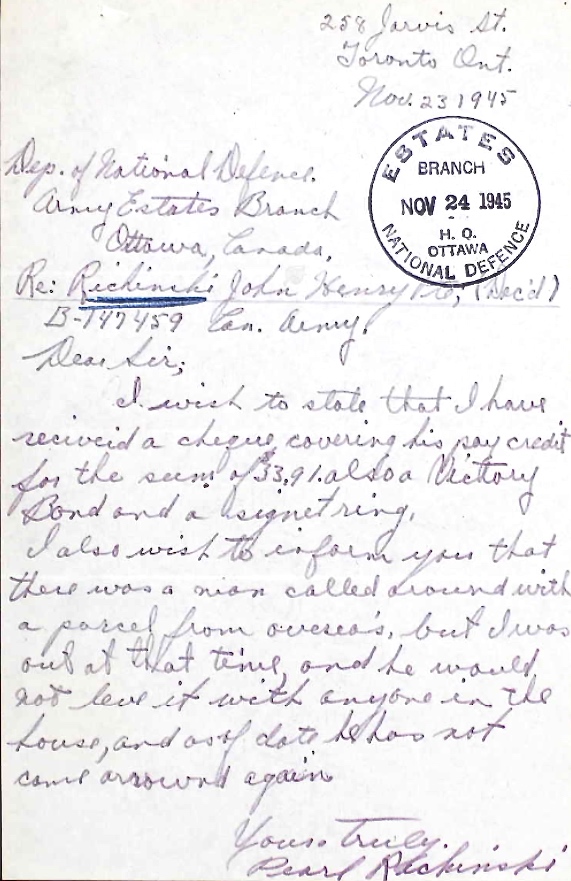 258 Jarvis St.
Toronto Ont.
Nov. 23 1945
ESTATES
BRANCH
NOV 24 1945
H. Q.
OTTAWA
NATIONAL DEFENCE
Dep. of National Defence.
Army Estates Branch
Ottawa, Canada,
Re: Richinski John Henry Pte; (Dec'd)
B-147459 Can. Army.
Dear Sir;
I wish to state that I have
recivcid a cheque covering his pay credit
for the sum of $33.91. also a Victory
Bond and a signet ring.
I also wish to inform you that
there was a man called around with
a parcel from overseas, but I was
out at that time, and he would
not leve it with anyone in the
house, and as of date he has not
came arround again
Yours truly.
Pearl Richinski